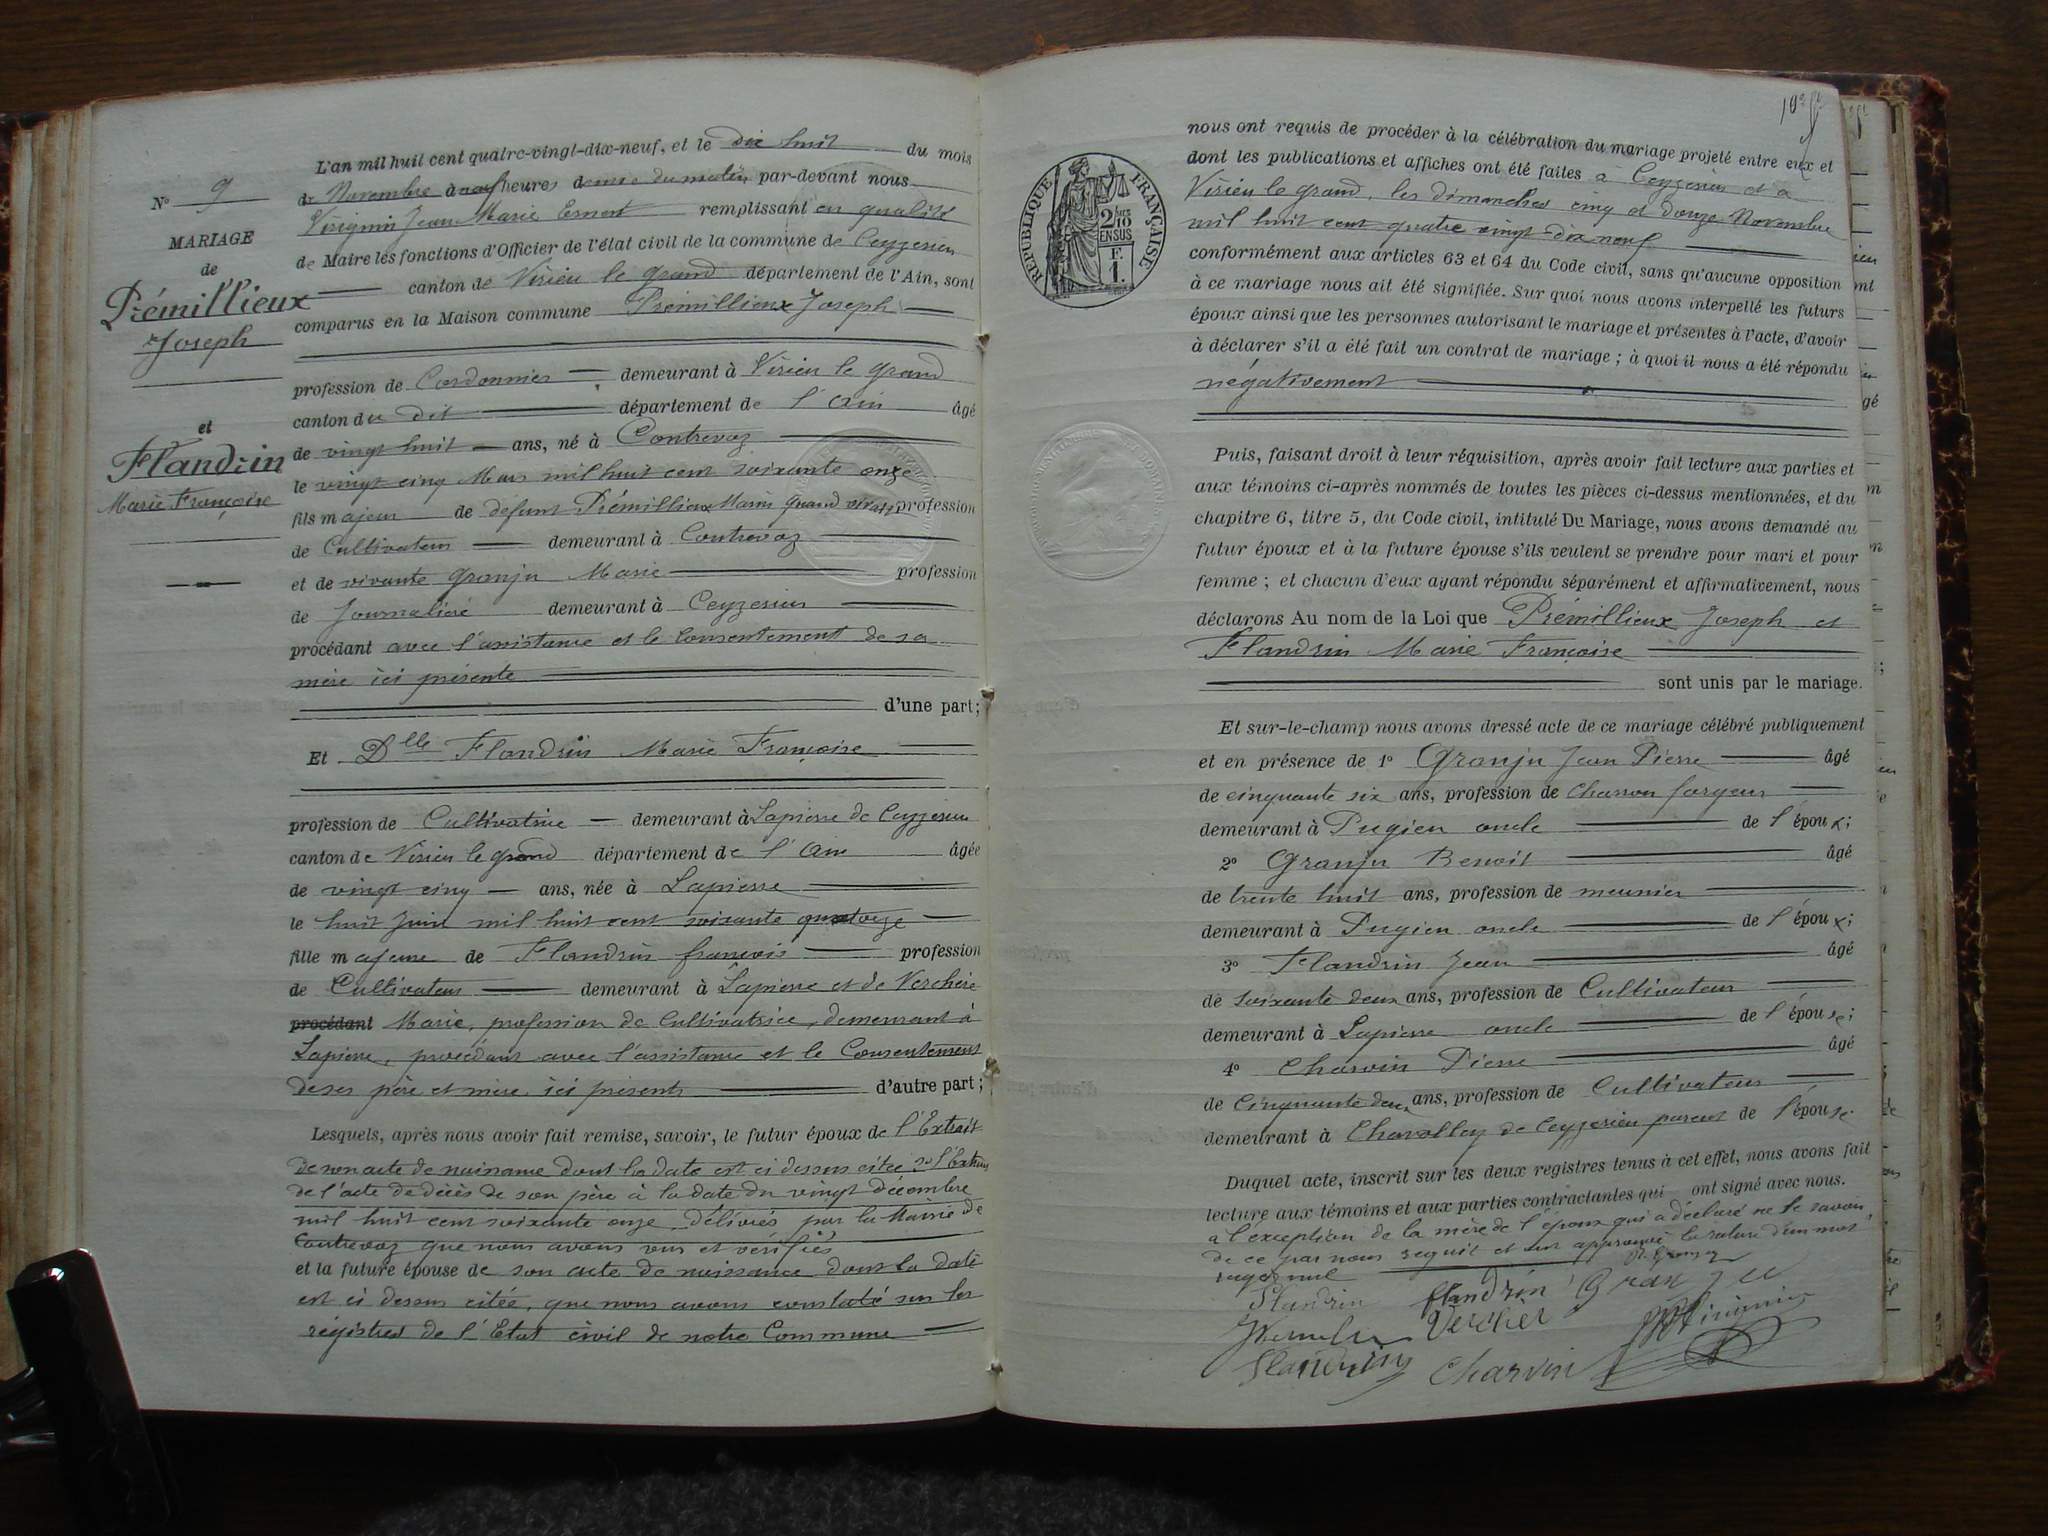 N° 9
MARIAGE
de
Prémillieux
Joseph
et
Flandrin
Marie Françoise
L'an mil huit cent quatre-vingt-dix-neuf, et le dix huit du mois
de Novembre à neuf heures du matin par-devant nous
Jean Marie Ernest remplissant en qualité
de Maire les fonctions d'Officier de l'état civil de la commune de Ceyzerieu
canton de Virieu le grand département de l'Ain, sont
comparus en la Maison commune Prémillieux Joseph
profession de Cordonnier demeurant à Virieu le grand
canton du dit département de l'Ain âgé
de vingt huit ans, né à Contrevoz
le vingt cinq Mars mil huit cent soixante onze
fils majeur de defunt Prémillieux Marin quand vivait profession
de Cultivateur demeurant à Contrevoz
et de vivante Granju Marie profession
de Journalière demeurant à Ceyzerieu
procédant avec l'assistance et le Consentement de sa
mère ici présente
d'une part;
Et Dlle Flandrin Marie Françoise
profession de Cultivatrice demeurant à Lapierre de Ceyzerieu
canton de Virieu le grand département de l'Ain âgée
de vingt cinq ans, née à Lapierre
le huit Juin mil huit cent soixante quatorze
fille majeure de Flandrin françois profession
de Cultivateur demeurant à Lapierre et de Verchère
procédant Marie, profession de Cultivatrice, demeurant à
Lapierre, procédant avec l'assistance et le Consentement
de ses père et mère ici présents d'autre part;
Lesquels, après nous avoir fait remise, savoir, le futur époux de l'Extrait
de son acte de naissance dont la date est ci dessus citée 2° l'Extrait
de l'acte de décès de son père à la date du vingt décembre
mil huit cent soixante onze délivrés par la Mairie de
Contrevoz que nous avons vus et vérifiés
et la future épouse de son acte de naissance dont la date
est ci dessus citée, que nous avons constaté sur les
registres de l'Etat civil de notre Commune
RÉPUBLIQUE FRANÇAISE
2 10
EN SUS
F.
1.
nous ont requis de procéder à la célébration du mariage projeté entre eux et
dont les publications et affiches ont été faites à Ceyzerieu et à
Virieu le grand, les dimanches cinq et douze Novembre
mil huit cent quatre vingt dix neuf
conformément aux articles 63 et 64 du Code civil, sans qu'aucune opposition
à ce mariage nous ait été signifiée. Sur quoi nous avons interpellé les futurs
époux ainsi que les personnes autorisant le mariage et présentes à l'acte, d'avoir
à déclarer s'il a été fait un contrat de mariage; à quoi il nous a été répondu
négativement
Puis, faisant droit à leur réquisition, après avoir fait lecture aux parties et
aux témoins ci-après nommés de toutes les pièces ci-dessus mentionnées, et du
chapitre 6, titre 5, du Code civil, intitulé Du Mariage, nous avons demandé au
futur époux et à la future épouse s'ils veulent se prendre pour mari et pour
femme; et chacun d'eux ayant répondu séparément et affirmativement, nous
déclarons Au nom de la Loi que Prémillieux Joseph et
Flandrin Marie Françoise
sont unis par le mariage.
Et sur-le-champ nous avons dressé acte de ce mariage célébré publiquement
et en présence de 1° Granju Jean Pierre âgé
de cinquante six ans, profession de Charron forgeur
demeurant à Pugieu oncle de l'époux;
2° Granju Benoit âgé
de trente huit ans, profession de meunier
demeurant à Pugieu oncle de l'époux;
3° Flandrin Jean âgé
de soixante deux ans, profession de Cultivateur
demeurant à Lapierre oncle de l'épouse;
4° Charvin Pierre âgé
de Cinquante deux ans, profession de Cultivateur
demeurant à Chavolley de Ceyzerieu parent de l'épouse.
Duquel acte, inscrit sur les deux registres tenus à cet effet, nous avons fait
lecture aux témoins et aux parties contractantes qui ont signé avec nous.
à l'exception de la mère de l'époux qui a déclaré ne le savoir,
de ce par nous requis et est approuvé la rature d'un mot
rayé nul
Flandrin flandrin Granju
Verchère
Flandrin Charvin